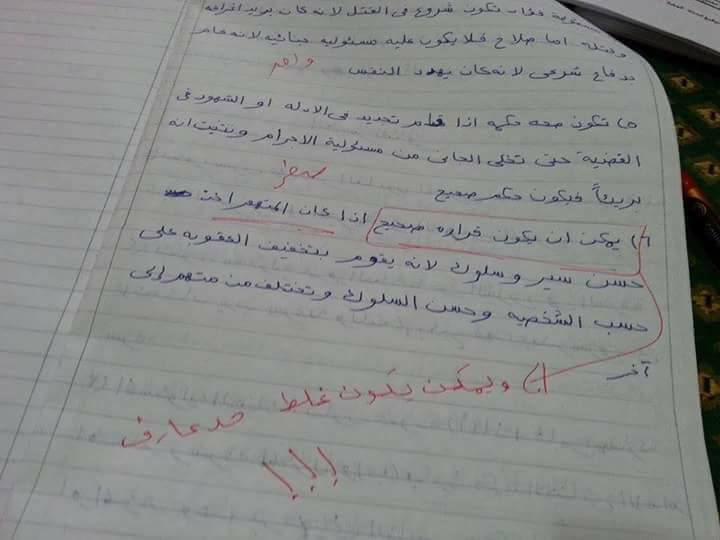 فقد تكون شروع فى القتل لانه كان يريد اخراجه
وقتله اما صلاح فلا يكون عليه مسئولية جنائيه لانه قام
بدفاع شرعى لانه كان يهدد النفس
ما تكون صحه حكمه اذا تم تحديد فى الادله او الشهود فى
القضية حتى تخلى الجانى من مسئولية الاجرام وتثبت انه
بريئاً فيكون حكم صحيح
صفر
يمكن ان يكون قراره صحيح اذا كان المتهم
حسن سير وسلوك لانه يقوم بتخفيف العقوبه على
حسب الشخصيه وحسن السلوك وتختلف من متهم إلى
آخر
ويمكن يكون غلط حد عارف
!!!